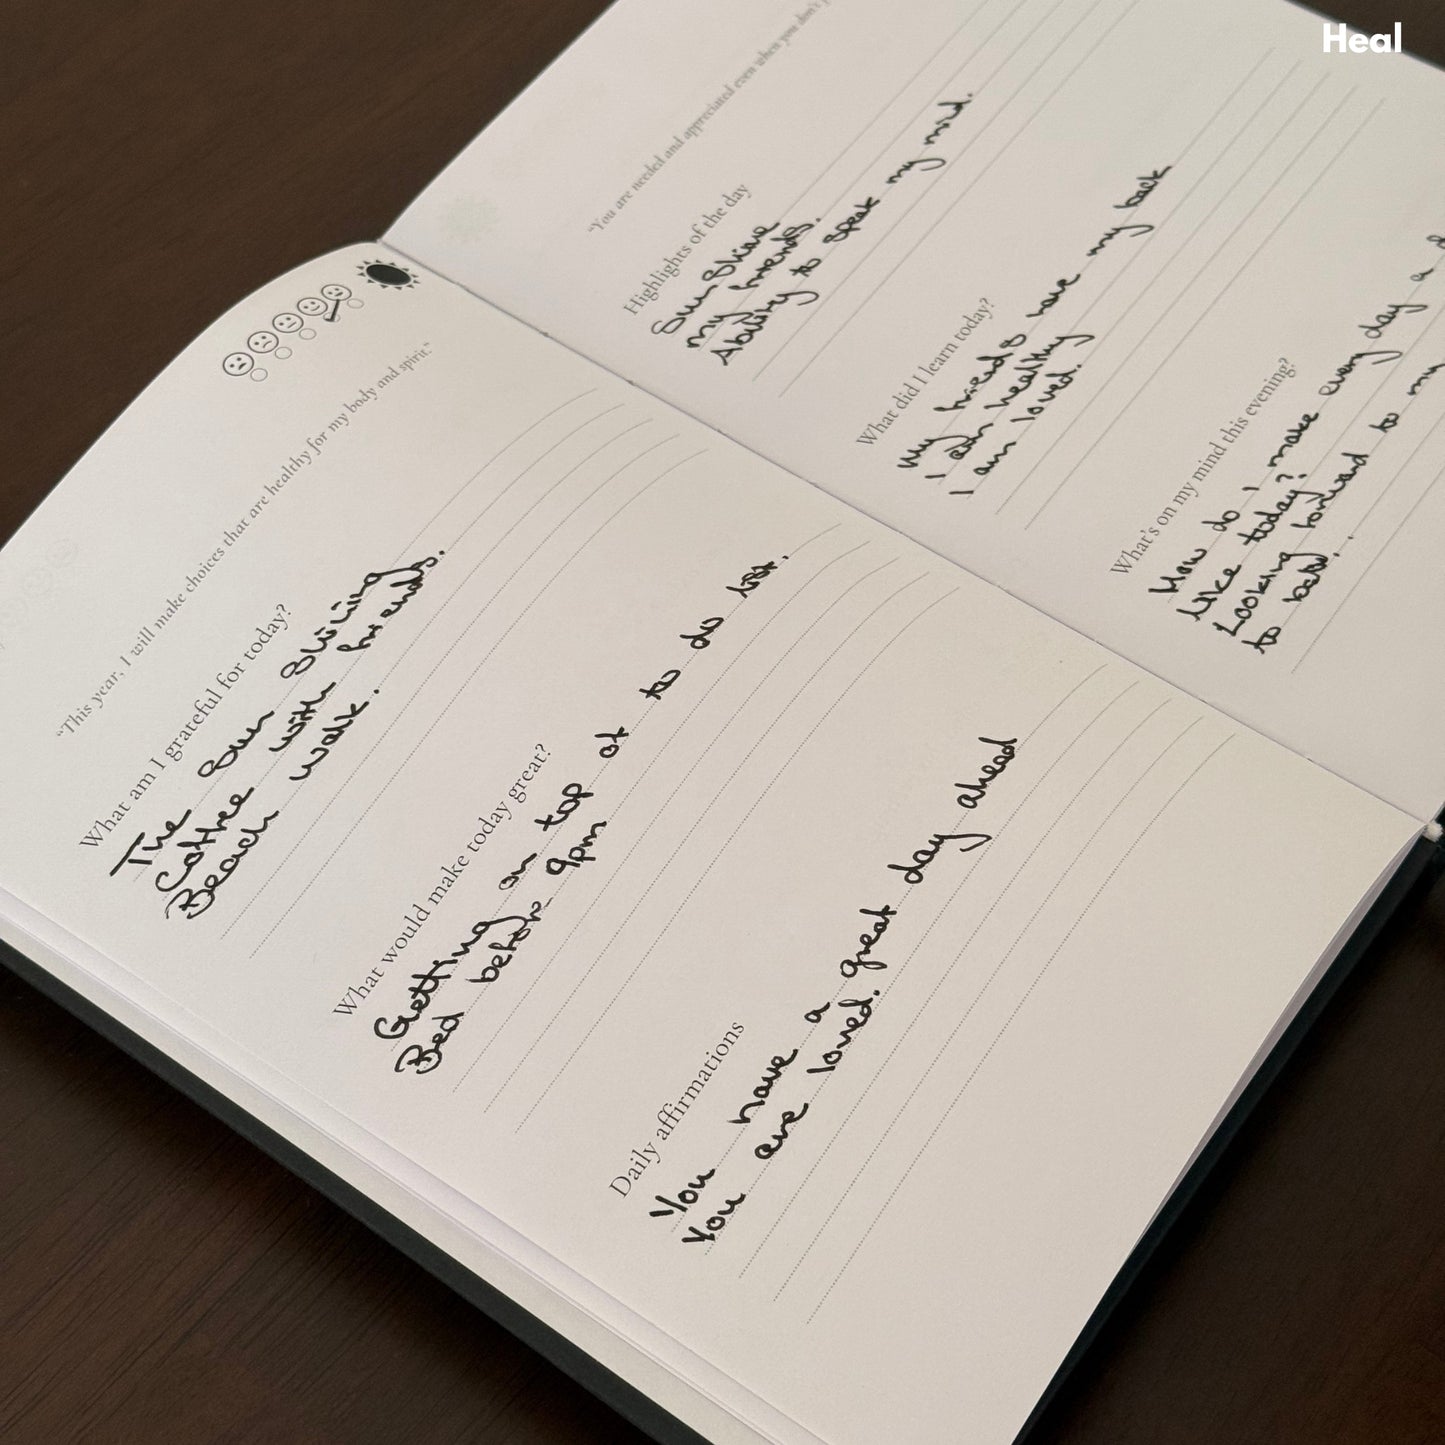 Heal
"This year, I will make choices that are healthy for my body and spirit."
What am I grateful for today?
The Sun Shining
Coffee with friends.
Beach walk.
What would make today great?
Getting on top of to do list.
Bed before 9pm
Daily affirmations
You have a great day ahead
You are loved.
"You are needed and appreciated even when you don't
Highlights of the day
Sun Shine
my friends.
Ability to speak my mind.
What did I learn today?
My friends have my back
I am healthy
I am loved.
What's on my mind this evening?
How do I make every day a
Like today?
Looking forward to my
to bed..